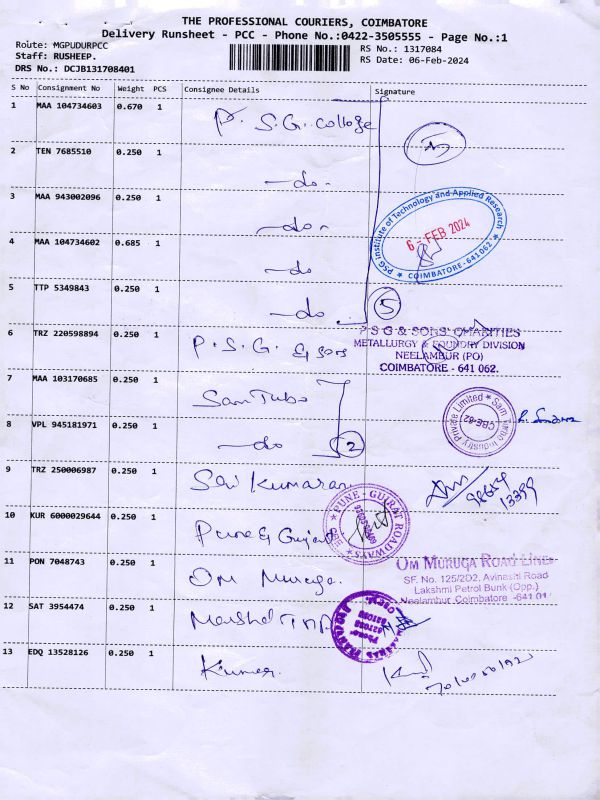 THE PROFESSIONAL COURIERS, COIMBATORE
Delivery Runsheet - PCC - Phone No.:0422-3505555 - Page No.:1
Route: MGPUDURPCC
RS No.: 1317084
Staff: RUSHEEP.
RS Date: 06-Feb-2024
DRS No.: DCJB131708401
S No Consignment No Weight PCS Consignee Details Signature
1 MAA 104734603 0.670 1 P. S.G. College
2 TEN 7685510 0.250 1 -do-
3 MAA 943002096 0.250 1 -do-
PSG Institute of Technology and Applied Research
6 - FEB 2024
COIMBATORE - 641062
4 MAA 104734602 0.685 1 -do
5 TTP 5349843 0.250 1 -do 5
6 TRZ 220598894 0.250 1 P. S. G. & Sons
P S G & SONS' CHARITIES
METALLURGY & FOUNDRY DIVISION
NEELAMBUR (PO)
COIMBATORE - 641 062.
7 MAA 103170685 0.250 1 Sam Turbo
Sam Turbo Industry Private Limited
CBE-62
8 VPL 945181971 0.250 1 -do 2
9 TRZ 250006987 0.250 1 Sri Kumaran
10 KUR 6000029644 0.250 1 Pune & Gujarat
PUNE - GUJRAT ROADWAYS
11 PON 7048743 0.250 1 Om Muruga.
OM MURUGA ROAD LINES
SF. No. 125/2D2, Avinashi Road
Lakshmi Petrol Bunk (Opp.)
Neelambur Coimbatore -641 01
12 SAT 3954474 0.250 1
13 EDQ 13528126 0.250 1 Kumar.